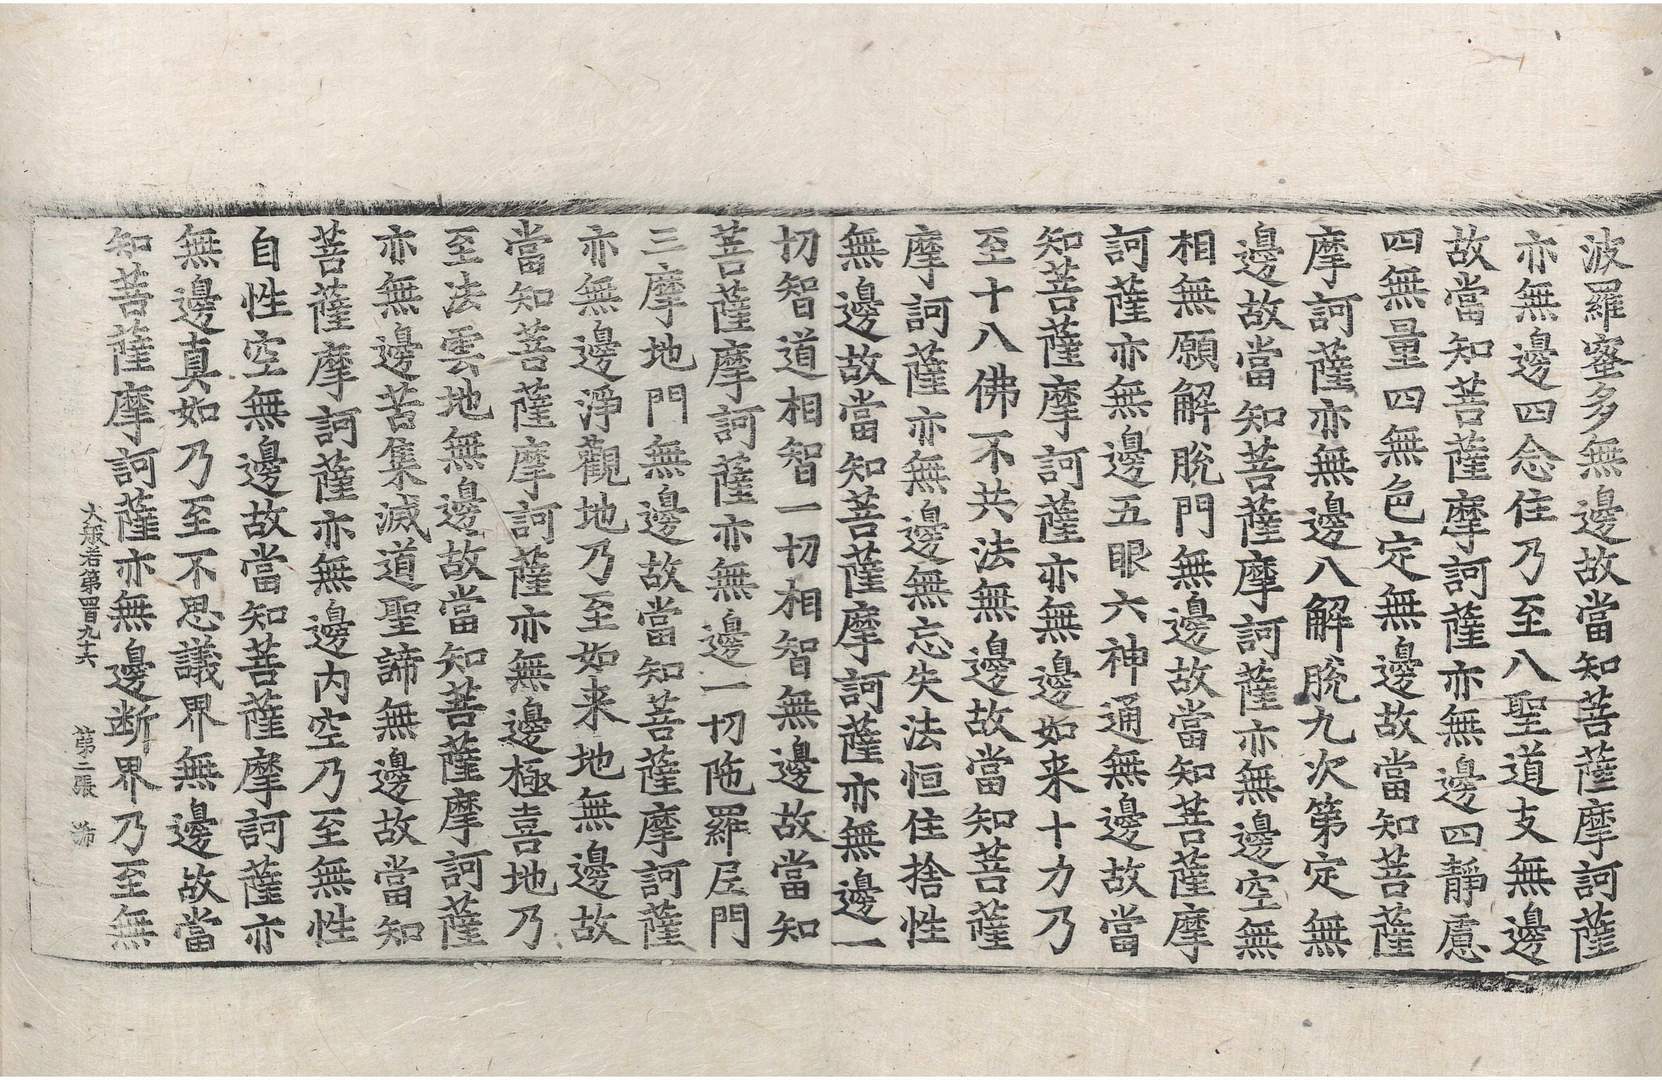 波羅蜜多無邊故當知菩薩摩訶薩
亦無邊四念住乃至八聖道支無邊
故當知菩薩摩訶薩亦無邊四靜慮
四無量四無色定無邊故當知菩薩
摩訶薩亦無邊八解脫九次第定無
邊故當知菩薩摩訶薩亦無邊空無
相無願解脫門無邊故當知菩薩摩
訶薩亦無邊五眼六神通無邊故當
知菩薩摩訶薩亦無邊如来十力乃
至十八佛不共法無邊故當知菩薩
摩訶薩亦無邊無忘失法恒住捨性
無邊故當知菩薩摩訶薩亦無邊一
切智道相智一切相智無邊故當知
菩薩摩訶薩亦無邊一切陁羅尼門
三摩地門無邊故當知菩薩摩訶薩
亦無邊淨觀地乃至如来地無邊故
當知菩薩摩訶薩亦無邊極喜地乃
至法雲地無邊故當知菩薩摩訶薩
亦無邊苦集滅道聖諦無邊故當知
菩薩摩訶薩亦無邊内空乃至無性
自性空無邊故當知菩薩摩訶薩亦
無邊真如乃至不思議界無邊故當
知菩薩摩訶薩亦無邊断界乃至無
大般若第四百九十六 第二張